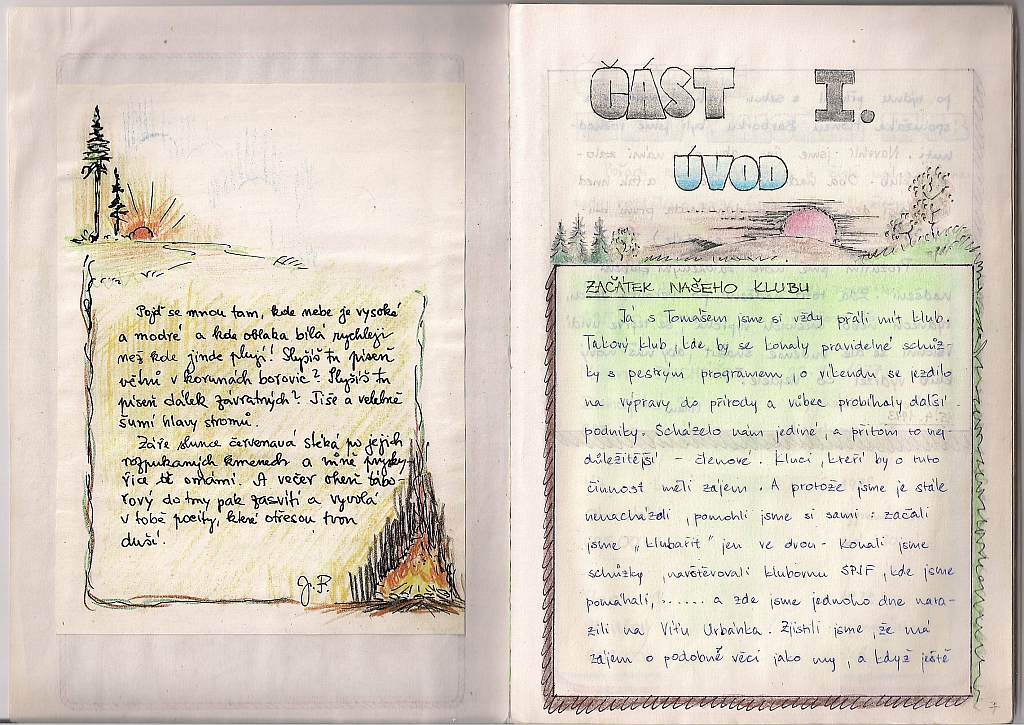 Pojď se mnou tam, kde nebe je vysoké
a modré a kde oblaka bílá rychleji
než kde jinde plují! Slyšíš tu píseň
větrů v korunách borovic? Slyšíš tu
píseň dálek závratných? Tiše a velebně
šumí hlavy stromů.
Záře slunce červenavá stéká po jejich
rozpukaných kmenech a vůně prysky-
řice tě omámí. A večer oheň tábo-
rový do tmy pak zasvítí a vyvolá
v tobě pocity, které otřesou tvou
duší.
J. F.
ČÁST I.
ÚVOD
ZAČÁTEK NAŠEHO KLUBU
Já s Tomášem jsme si vždy přáli mít klub.
Takový klub, kde by se konaly pravidelné schůz-
ky s pestrým programem, o víkendu se jezdilo
na výpravy do přírody a vůbec probíhaly další
podniky. Scházelo nám jediné, a přitom to nej-
důležitější - členové. Kluci, kteří by o tuto
činnost měli zájem. A protože jsme je stále
nenacházeli, pomohli jsme si sami: začali
jsme „klubařit" jen ve dvou - konali jsme
schůzky, navštěvovali klubovnu SPJF, kde jsme
pomáhali, ...... a zde jsme jednoho dne nara-
zili na Víťu Urbánka. Zjistili jsme, že má
zájem o podobné věci jako my, a když ještě
7